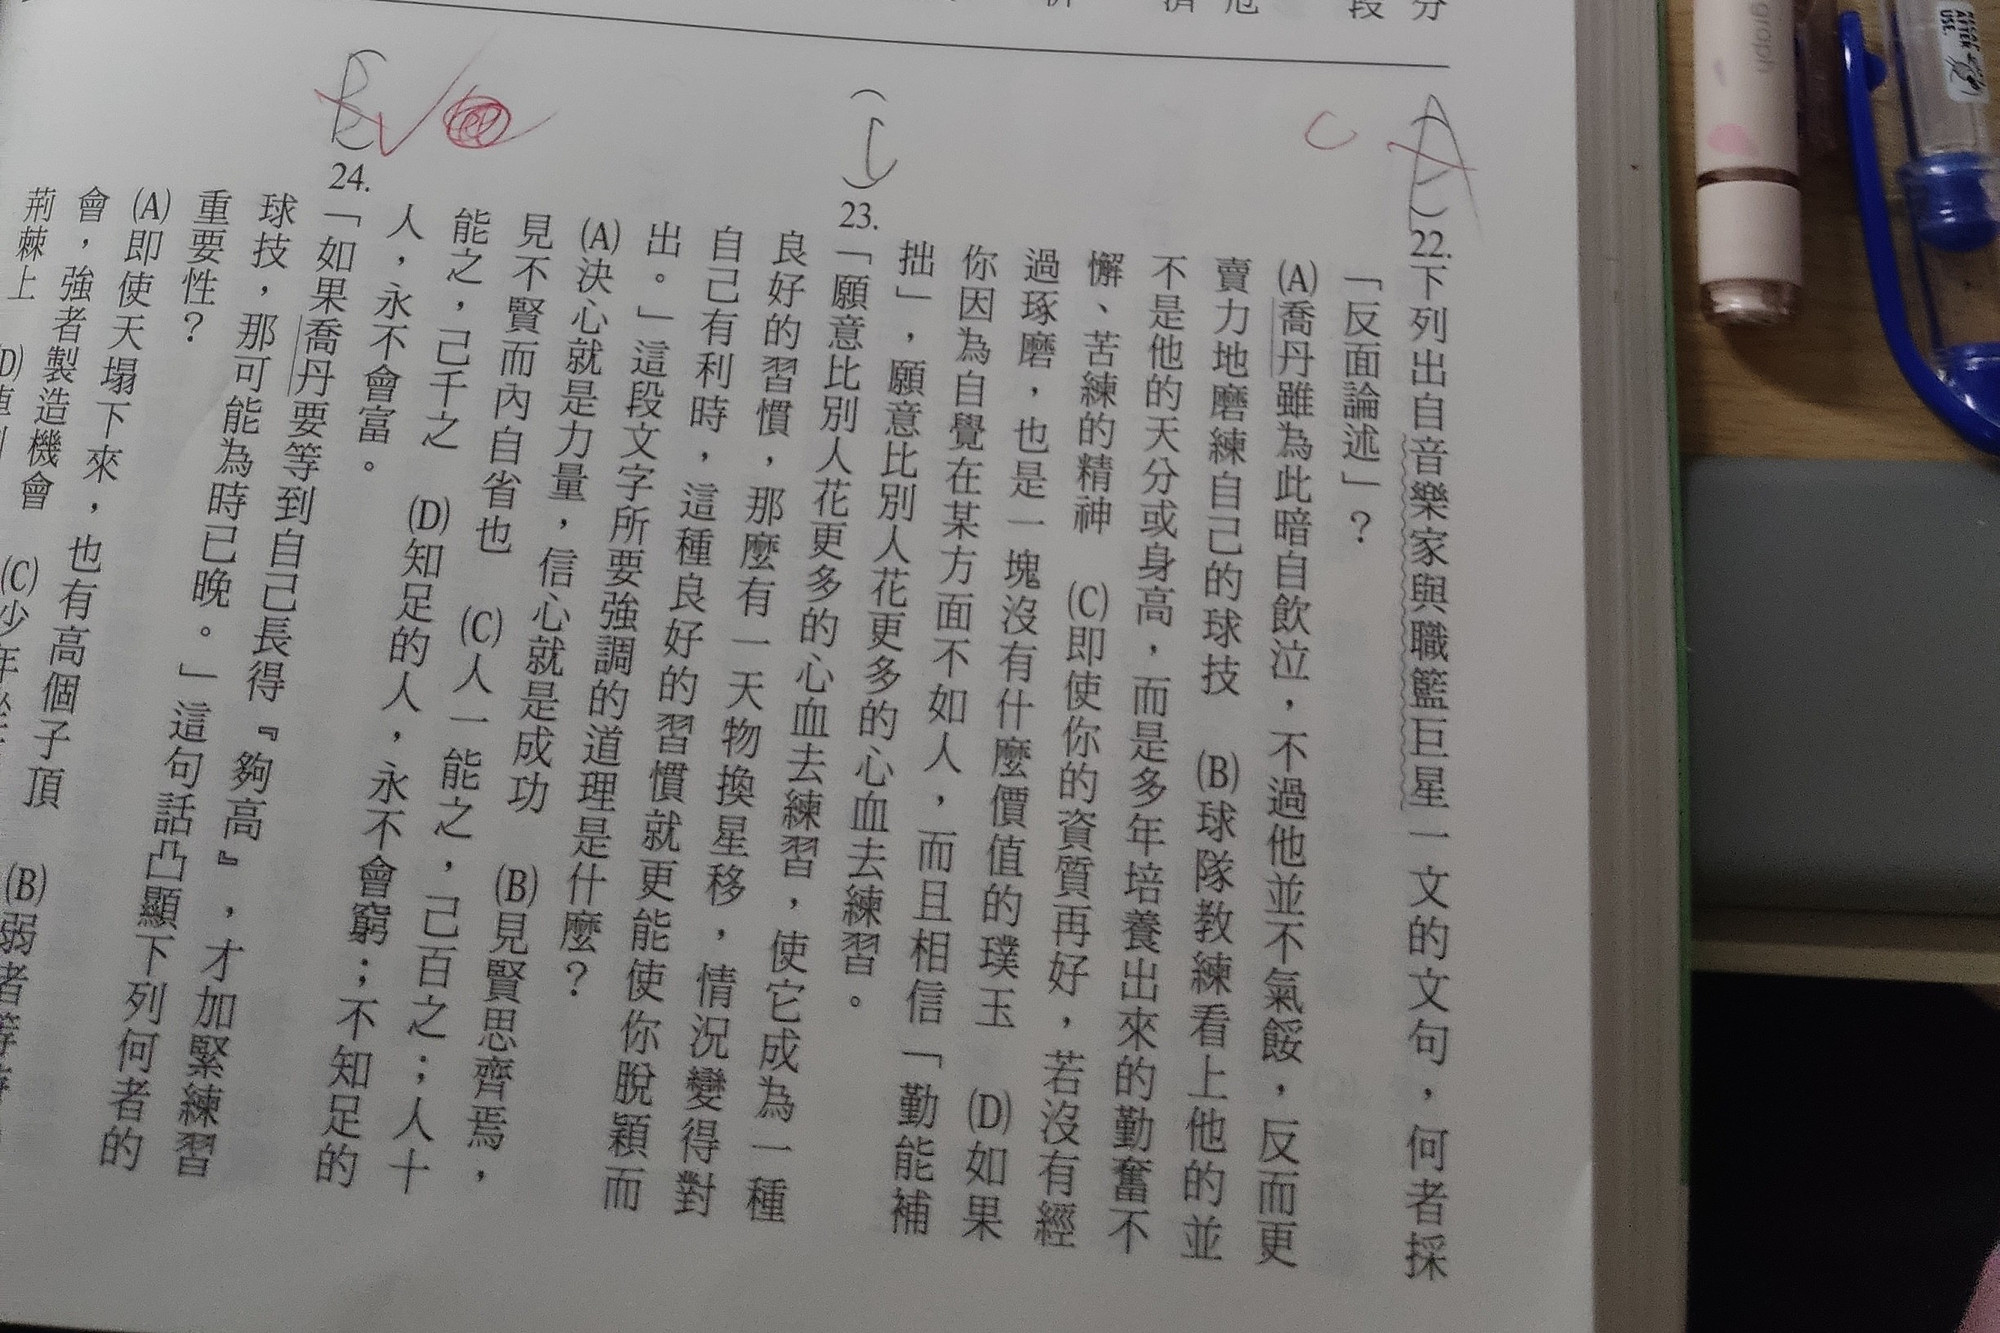 22.下列出自音樂家與職籃巨星一文的文句，何者採
「反面論述」？
(A)喬丹雖為此暗自飲泣，不過他並不氣餒，反而更
賣力地磨練自己的球技　(B)球隊教練看上他的並
不是他的天分或身高，而是多年培養出來的勤奮不
懈、苦練的精神　(C)即使你的資質再好，若沒有經
過琢磨，也是一塊沒有什麼價值的璞玉　(D)如果
你因為自覺在某方面不如人，而且相信「勤能補
拙」，願意比別人花更多的心血去練習。
23.「願意比別人花更多的心血去練習，使它成為一種
良好的習慣，那麼有一天物換星移，情況變得對
自己有利時，這種良好的習慣就更能使你脫穎而
出。」這段文字所要強調的道理是什麼？
(A)決心就是力量，信心就是成功　(B)見賢思齊焉，
見不賢而內自省也　(C)人一能之，己百之；人十
能之，己千之　(D)知足的人，永不會窮；不知足的
人，永不會富。
24.「如果喬丹要等到自己長得『夠高』，才加緊練習
球技，那可能為時已晚。」這句話凸顯下列何者的
重要性？
(A)即使天塌下來，也有高個子頂　(B)弱者等待
會，強者製造機會　(C)少年
荊棘上　(D)